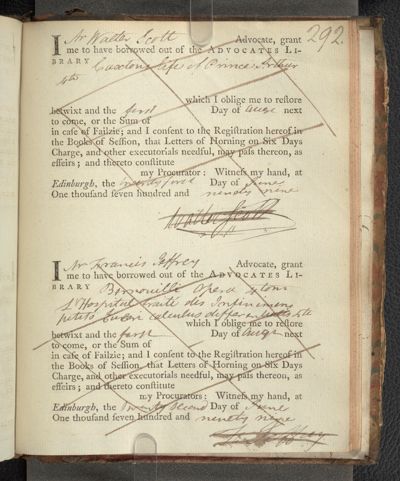 292.
I Mr Walter Scott Advocate, grant
me to have borrowed out of the ADVOCATES LI-
BRARY Caxtons life of Prince Arthur
4to
which I oblige me to reſtore
betwixt and the first Day of next
to come, or the Sum of
in caſe of Failzie; and I conſent to the Regiſtration hereof in
the Books of Seſſion, that Letters of Horning on Six Days
Charge, and other executorials needful, may paſs thereon, as
effeirs; and thereto conſtitute
my Procurator: Witneſs my hand, at
Edinburgh, the twenty first Day of June
One thouſand ſeven hundred and ninety nine
Walter Scott
I Mr Francis Jeffrey Advocate, grant
me to have borrowed out of the ADVOCATES LI-
BRARY Bernouilli Opera 4 tom
L'Hospital traité des Infiniment
petits Euleri calculus differentialis 4to
which I oblige me to reſtore
betwixt and the first Day of next
to come, or the Sum of
in caſe of Failzie; and I conſent to the Regiſtration hereof in
the Books of Seſſion, that Letters of Horning on Six Days
Charge, and other executorials needful, may paſs thereon, as
effeirs; and thereto conſtitute
my Procurators: Witneſs my hand, at
Edinburgh, the twenty second Day of June
One thouſand ſeven hundred and ninety nine